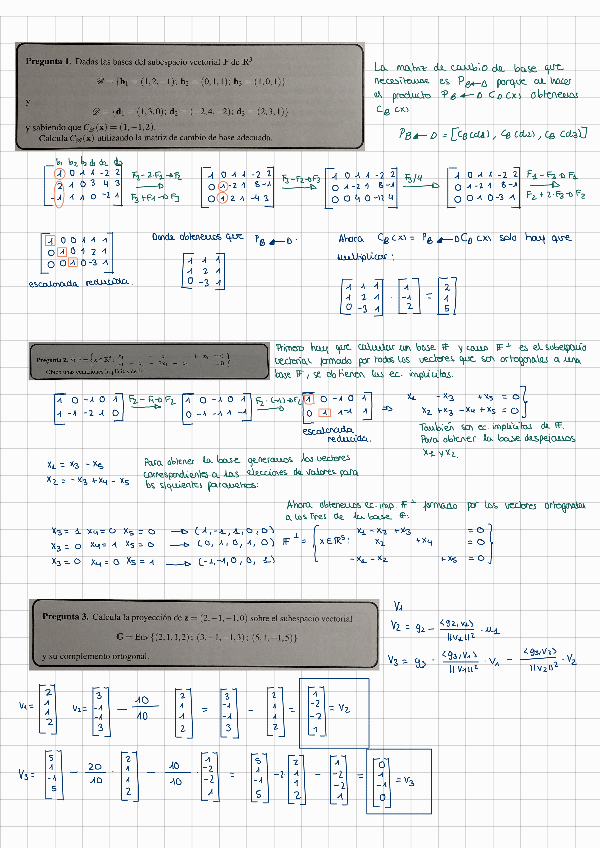 Pregunta 1. Dadas las bases del subespacio vectorial F de R³
ℬ = {b₁ = (1, 2, -1); b₂ = (0, 1, 1); b₃ = (1, 0, 1)}
y
𝒟 = {d₁ = (1, 3, 0); d₂ = (-2, 4, -2); d₃ = (-2, 3, 1)}
y sabiendo que C𝒟(x) = (1, -1, 2).
Calcula Cℬ(x) utilizando la matriz de cambio de base adecuada.
La matriz de cambio de base que
necesitamos es P B←D porque al hacer
el producto P B←D C D (x) obtenemos
C B (x)
P B←D = [C B (d1), C B (d2), C B (d3)]
b1 b2 b3 d1 d2 d3
1 0 1 1 -2 2
2 1 0 3 4 3
-1 1 1 0 -2 1
F2-2·F1→F2
F3+F1→F3
1 0 1 1 -2 2
0 1 -2 1 8 -1
0 1 2 1 -4 3
F3-F2→F3
1 0 1 1 -2 2
0 1 -2 1 8 -1
0 0 4 0 -12 4
F3/4
1 0 1 1 -2 2
0 1 -2 1 8 -1
0 0 1 0 -3 1
F1-F3→F1
F2+2·F3→F2
1 0 0 1 1 1
0 1 0 1 2 1
0 0 1 0 -3 1
escalonada reducida.
Donde obtenemos que P B←D.
1 1 1
1 2 1
0 -3 1
Ahora C B (x) = P B←D C D (x) solo hay que
multiplicar:
1 1 1
1 2 1
0 -3 1
·
1
-1
2
=
2
1
5
Pregunta 2.
Primero hay que calcular un base F y como F⊥ es el subespacio
vectorial formado por todos los vectores que son ortogonales a una
base F, se obtienen las ec. implícitas.
1 0 -1 0 1
1 -1 -2 1 0
F2-F1→F2
1 0 -1 0 1
0 -1 -1 1 -1
F2·(-1)→F2
1 0 -1 0 1
0 1 1 -1 1
escalonada
reducida.
⇒
x1 - x3 + x5 = 0
x2 + x3 - x4 + x5 = 0
También son ec. implícitas de F.
Para obtener la base despejamos
x1 y x2.
x1 = x3 - x5
x2 = -x3 + x4 - x5
Para obtener la base generamos los vectores
correspondientes a las elecciones de valores para
los siguientes parámetros:
Ahora obtenemos ec. imp F⊥ formado por los vectores ortogonales
a los tres de la base F.
x3=1 x4=0 x5=0 → (1,-1,1,0,0)
x3=0 x4=1 x5=0 → (0,1,0,1,0)
x3=0 x4=0 x5=1 → (-1,-1,0,0,1)
F⊥ = { x∈R⁵:
x1 - x2 + x3 = 0
x2 + x4 = 0
-x1 - x2 + x5 = 0
Pregunta 3. Calcula la proyección de z = (2, -1, -1, 0) sobre el subespacio vectorial
G = Env {(2, 1, 1, 2); (3, -1, -1, 3); (5, 1, -1, 5)}
y su complemento ortogonal.
V1
V2 = g2 - <g2,v1>/||v1||² · u1
V3 = g3 - <g3,v1>/||v1||² · V1 - <g3,v2>/||v2||² · V2
V1 =
2
1
1
2
V2 =
3
-1
-1
3
- 10/10
2
1
1
2
=
3
-1
-1
3
-
2
1
1
2
=
1
-2
-2
1
= V2
V3 =
5
1
-1
5
- 20/10 ·
2
1
1
2
- 10/10 ·
1
-2
-2
1
=
5
1
-1
5
-2
2
1
1
2
-
1
-2
-2
1
=
0
1
-1
0
= V3